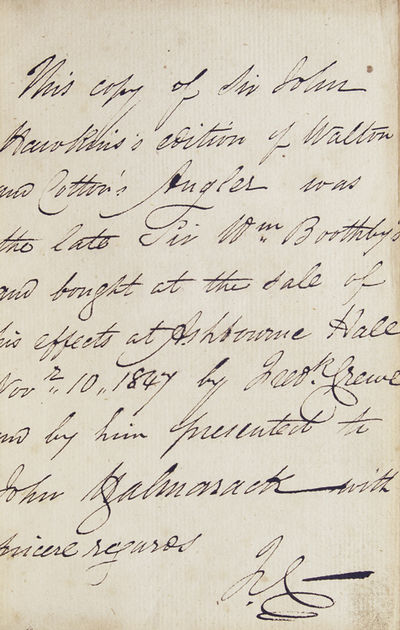 This copy of Sir John
Hawkins's edition of Walton
and Cotton's Angler was
the late Sir Wm Boothby's
and bought at the sale of
his effects at Ashbourne Hall
Novr 10, 1847 by Fredk Crewe
and by him presented to
John with
sincere regards
FC